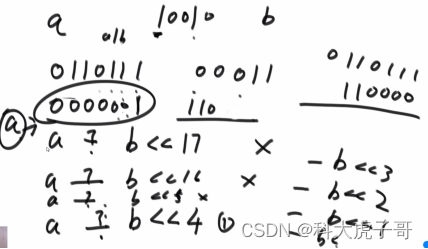 a 10010 b
016
0110111 00011 0110111
0000001 110 110000
a
a ? b<<17 ×
- b<<3
a ? b<<16 ×
- b<<2
a ? b<<5 ×
a ? b<<4 ①
CSDN @科大虎子哥